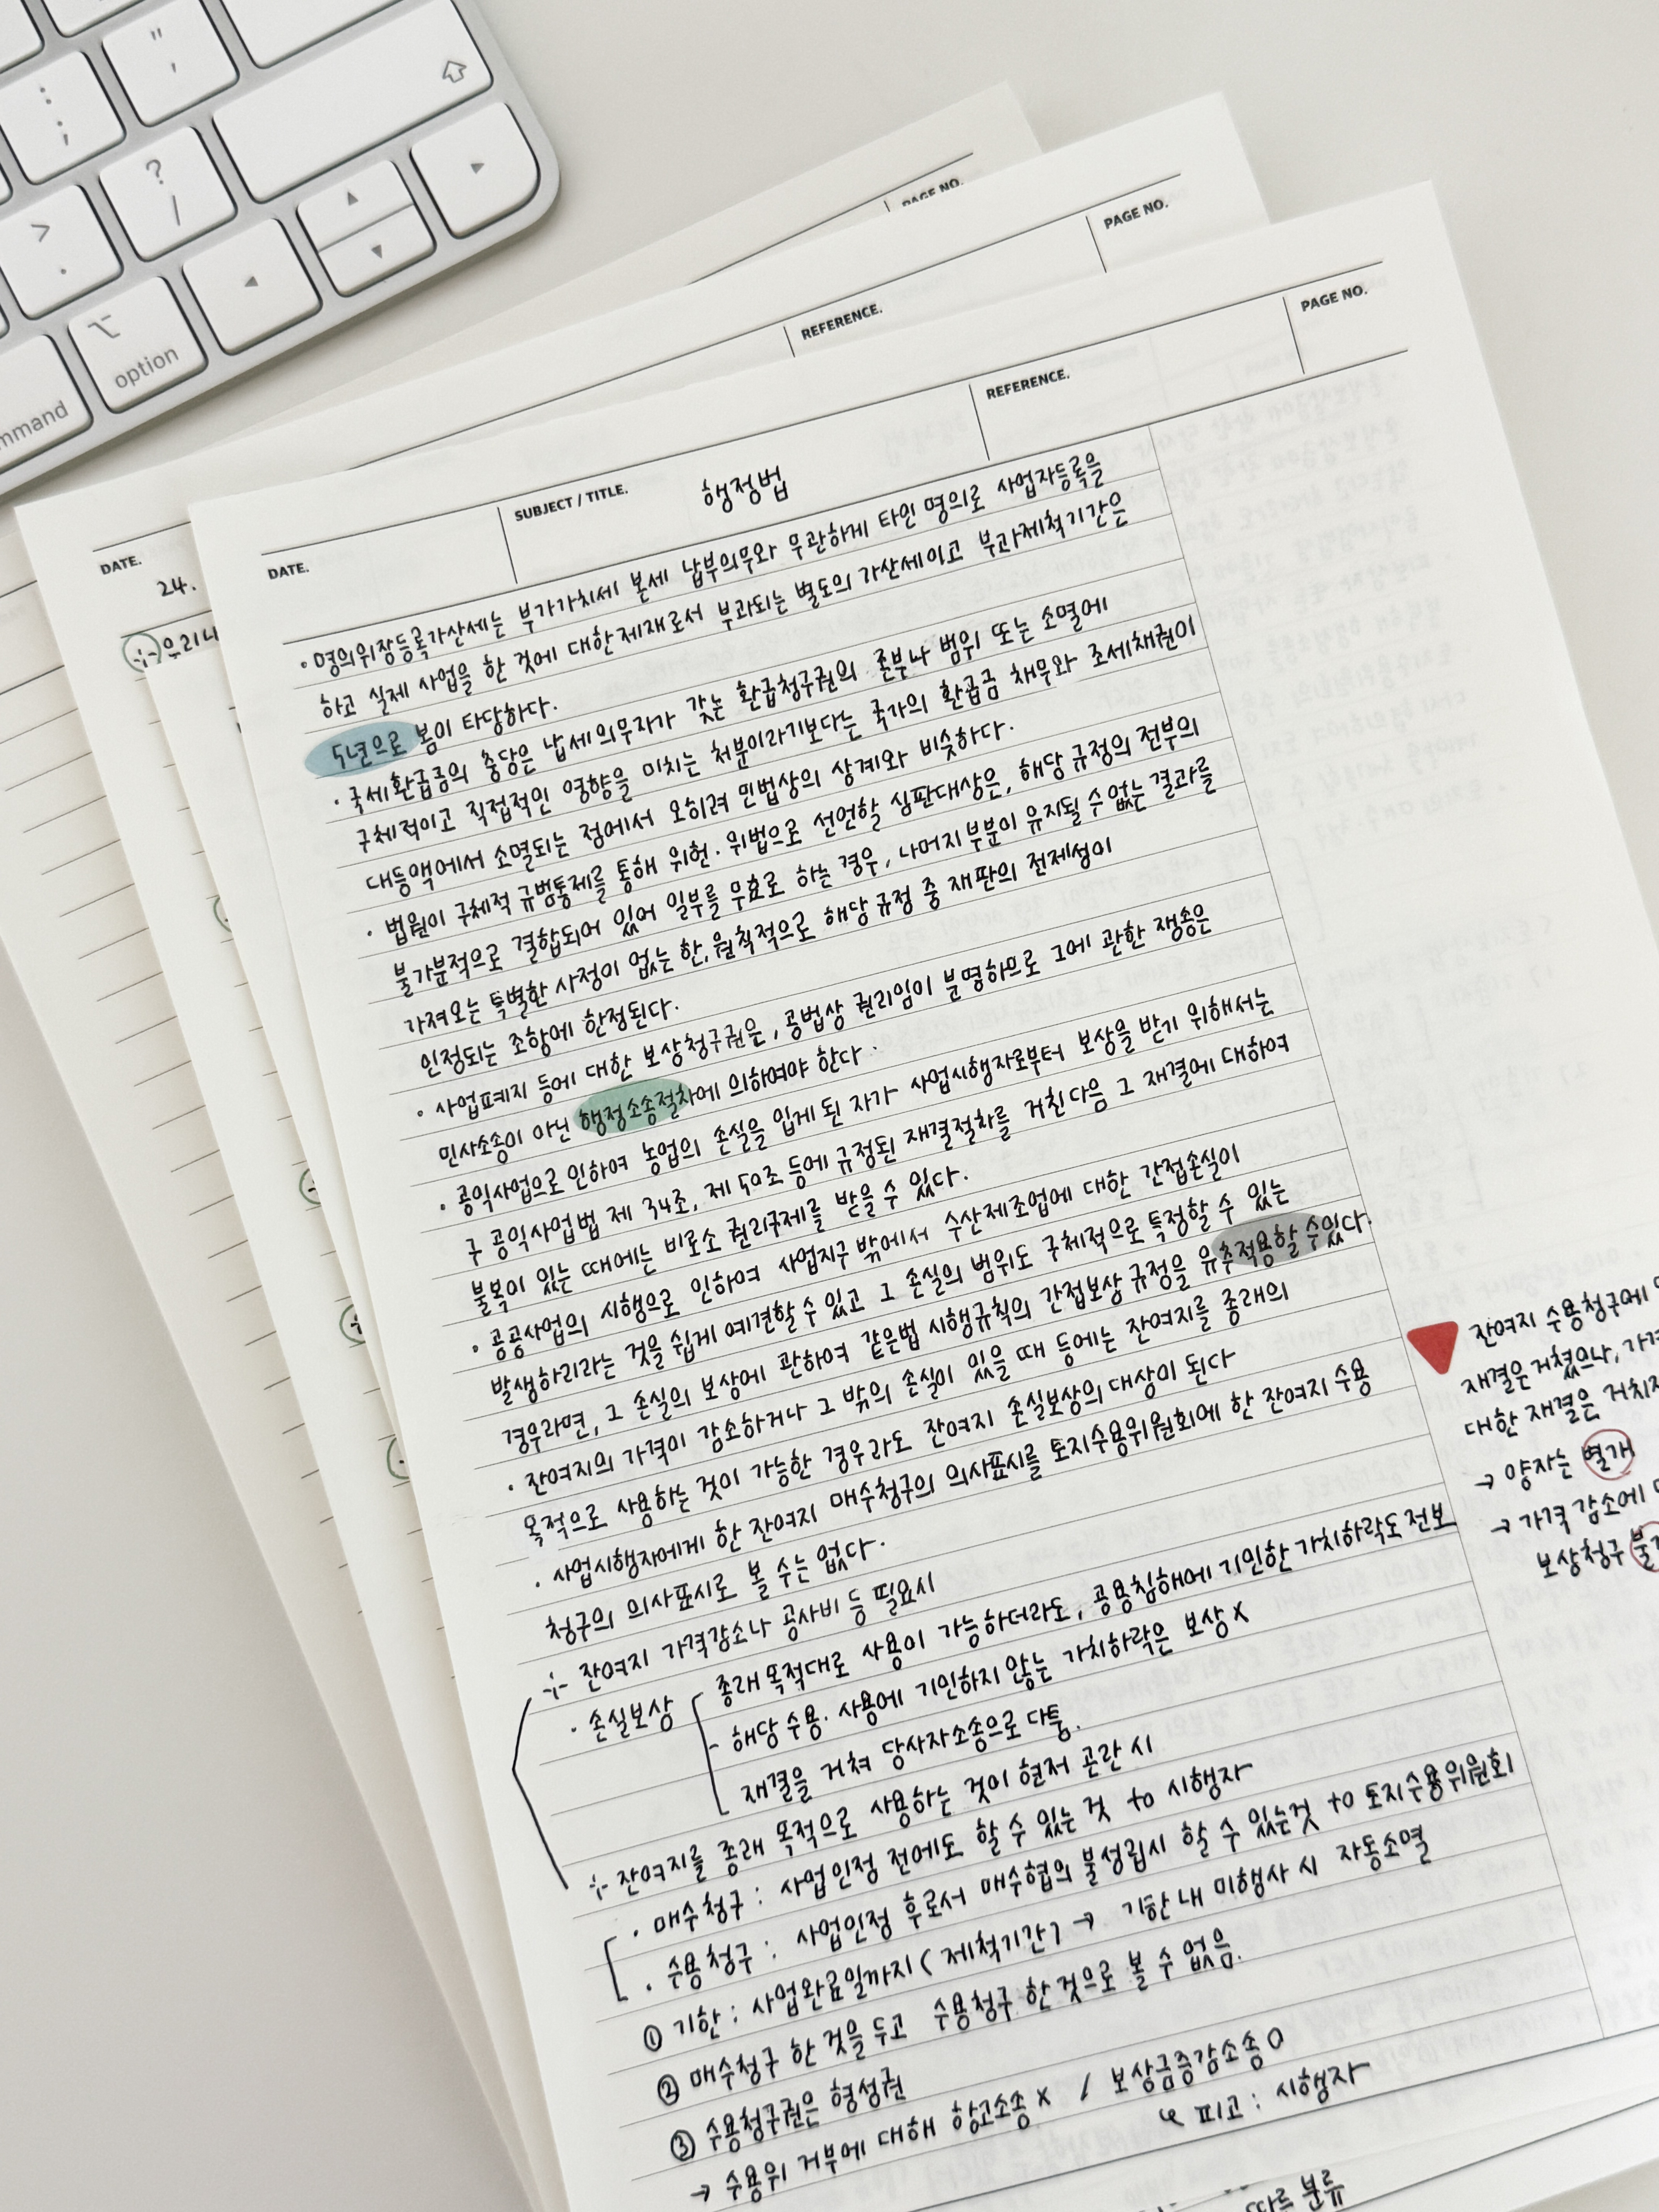 " '
: ;
? /
> .
option
mmand
PAGE NO.
PAGE NO.
REFERENCE.
PAGE NO.
REFERENCE.
SUBJECT / TITLE.
행정법
DATE.
DATE.
24.
우리나
· 명의위장등록가산세는 부가가치세 본세 납부의무와 무관하게 타인 명의로 사업자등록을
하고 실제 사업을 한 것에 대한 제재로서 부과되는 별도의 가산세이고 부과제척기간은
5년으로 봄이 타당하다.
· 국세환급금의 충당은 납세의무자가 갖는 환급청구권의 존부나 범위 또는 소멸에
구체적이고 직접적인 영향을 미치는 처분이라기보다는 국가의 환급금 채무와 조세채권이
대등액에서 소멸되는 점에서 오히려 민법상의 상계와 비슷하다.
· 법원이 구체적 규범통제를 통해 위헌·위법으로 선언할 심판대상은, 해당 규정의 전부의
불가분적으로 결합되어 있어 일부를 무효로 하는 경우, 나머지 부분이 유지될 수 없는 결과를
가져오는 특별한 사정이 없는 한, 원칙적으로 해당 규정 중 재판의 전제성이
인정되는 조항에 한정된다.
· 사업폐지 등에 대한 보상청구권은, 공법상 권리임이 분명하므로 그에 관한 쟁송은
민사소송이 아닌 행정소송절차에 의하여야 한다.
· 공익사업으로 인하여 농업의 손실을 입게 된 자가 사업시행자로부터 보상을 받기 위해서는
구 공익사업법 제 34조, 제 50조 등에 규정된 재결절차를 거친 다음 그 재결에 대하여
불복이 있는 때에는 비로소 권리구제를 받을 수 있다.
· 공공사업의 시행으로 인하여 사업지구 밖에서 수산제조업에 대한 간접손실이
발생하리라는 것을 쉽게 예견할 수 있고 그 손실의 범위도 구체적으로 특정할 수 있는
경우라면, 그 손실의 보상에 관하여 같은법 시행규칙의 간접보상 규정을 유추적용할 수있다.
· 잔여지의 가격이 감소하거나 그 밖의 손실이 있을 때 등에는 잔여지를 종래의
목적으로 사용하는 것이 가능한 경우라도 잔여지 손실보상의 대상이 된다
· 사업시행자에게 한 잔여지 매수청구의 의사표시를 토지수용위원회에 한 잔여지 수용
청구의 의사표시로 볼 수는 없다.
잔여지 가격감소나 공사비 등 필요시
· 손실보상
종래 목적대로 사용이 가능하더라도, 공용침해에 기인한 가치하락도 전보
- 해당 수용·사용에 기인하지 않는 가치하락은 보상 X
재결을 거쳐 당사자소송으로 다툼.
잔여지를 종래 목적으로 사용하는 것이 현저 곤란 시
· 매수청구 : 사업인정 전에도 할 수 있는 것 to 시행자
· 수용청구 : 사업인정 후로서 매수협의 불성립시 할 수 있는것 to 토지수용위원회
① 기한 : 사업완료일까지 ( 제척기간) → 기한 내 미행사 시 자동소멸
② 매수청구 한 것을 두고 수용청구 한 것으로 볼 수 없음.
③ 수용청구권은 형성권
→ 수용위 거부에 대해 항고소송 X / 보상금증감소송 O
↳ 피고 : 시행자
잔여지 수용청구에
재결은 거쳤으나, 가격
대한 재결은 거치지
→ 양자는 별개
→ 가격 감소에
보상청구 불
따른 분류